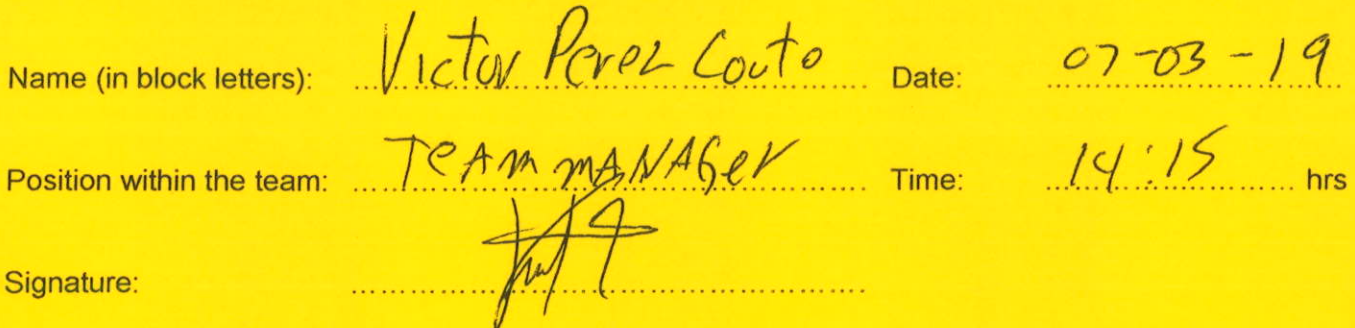 Name (in block letters): Victor Perez Couto Date: 07-03-19
Position within the team: TeAm mANAGer Time: 14:15 hrs
Signature: